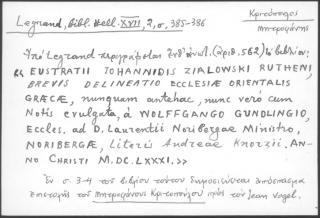 Legrand, Bibl. Hell. XVII, 2, σ, 385-386
Κριτόπουλος
Μητροφάνης
Ὑπὸ Legrand περιγράφεται ἐνθ' ἀνωτ. (ἀριθ. 562) τὸ βιβλίον:
« EUSTRATII JOHANNIDIS ZIALOWSKI RUTHENI,
BREVIS DELINEATIO ECCLESIÆ ORIENTALIS
GRÆCÆ, nunquam antehac, nunc verò cum
Notis evulgata, à WOLFFGANGO GUNDLINGIO,
Eccles. ad D. Laurentii Noribergæ Ministro,
NORIBERGÆ, Literis Andreae Knorzii. AN-
NO CHRISTI M.DC.LXXXI. »
Ἐν σ. 3-4 τοῦ βιβλίου τούτου δημοσιεύεται ἀπόσπασμα
ἐπιστολῆς τοῦ Μητροφάνους Κριτοπούλου πρὸς τὸν Jean Vogel.